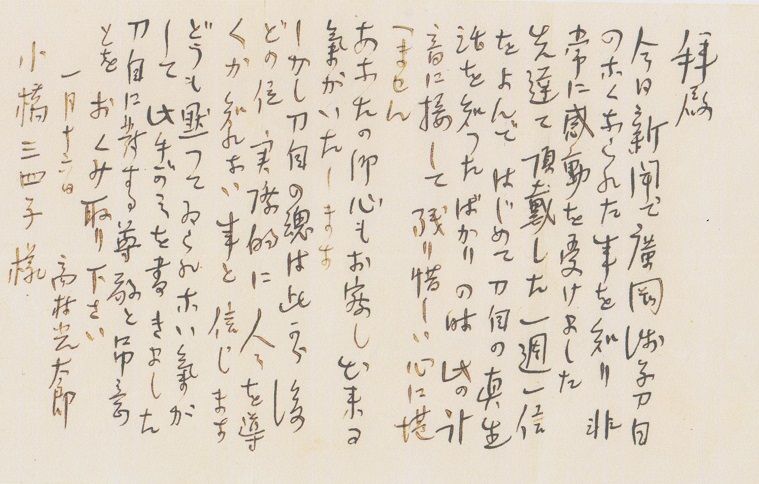 拝啓
今日新聞で廣岡浅子刀自
のなくなられた事を知り非
常に感動を受けました
先達て頂戴した一週一信
をよんではじめて刀自の真生
活を知つたばかりの時此の訃
音に接して残り惜しい心に堪
へません
あなたの御心もお察し出来る
氣がいたします
しかし刀自の魂は此から後
どの位実際的に人々を導
くか知れない事と信じます
どうも黙つてゐられない氣が
して此手がみを書きました
刀自に対する尊敬と弔意
とをおくみ取り下さい
一月十六日 高村光太郎
小橋三四子様